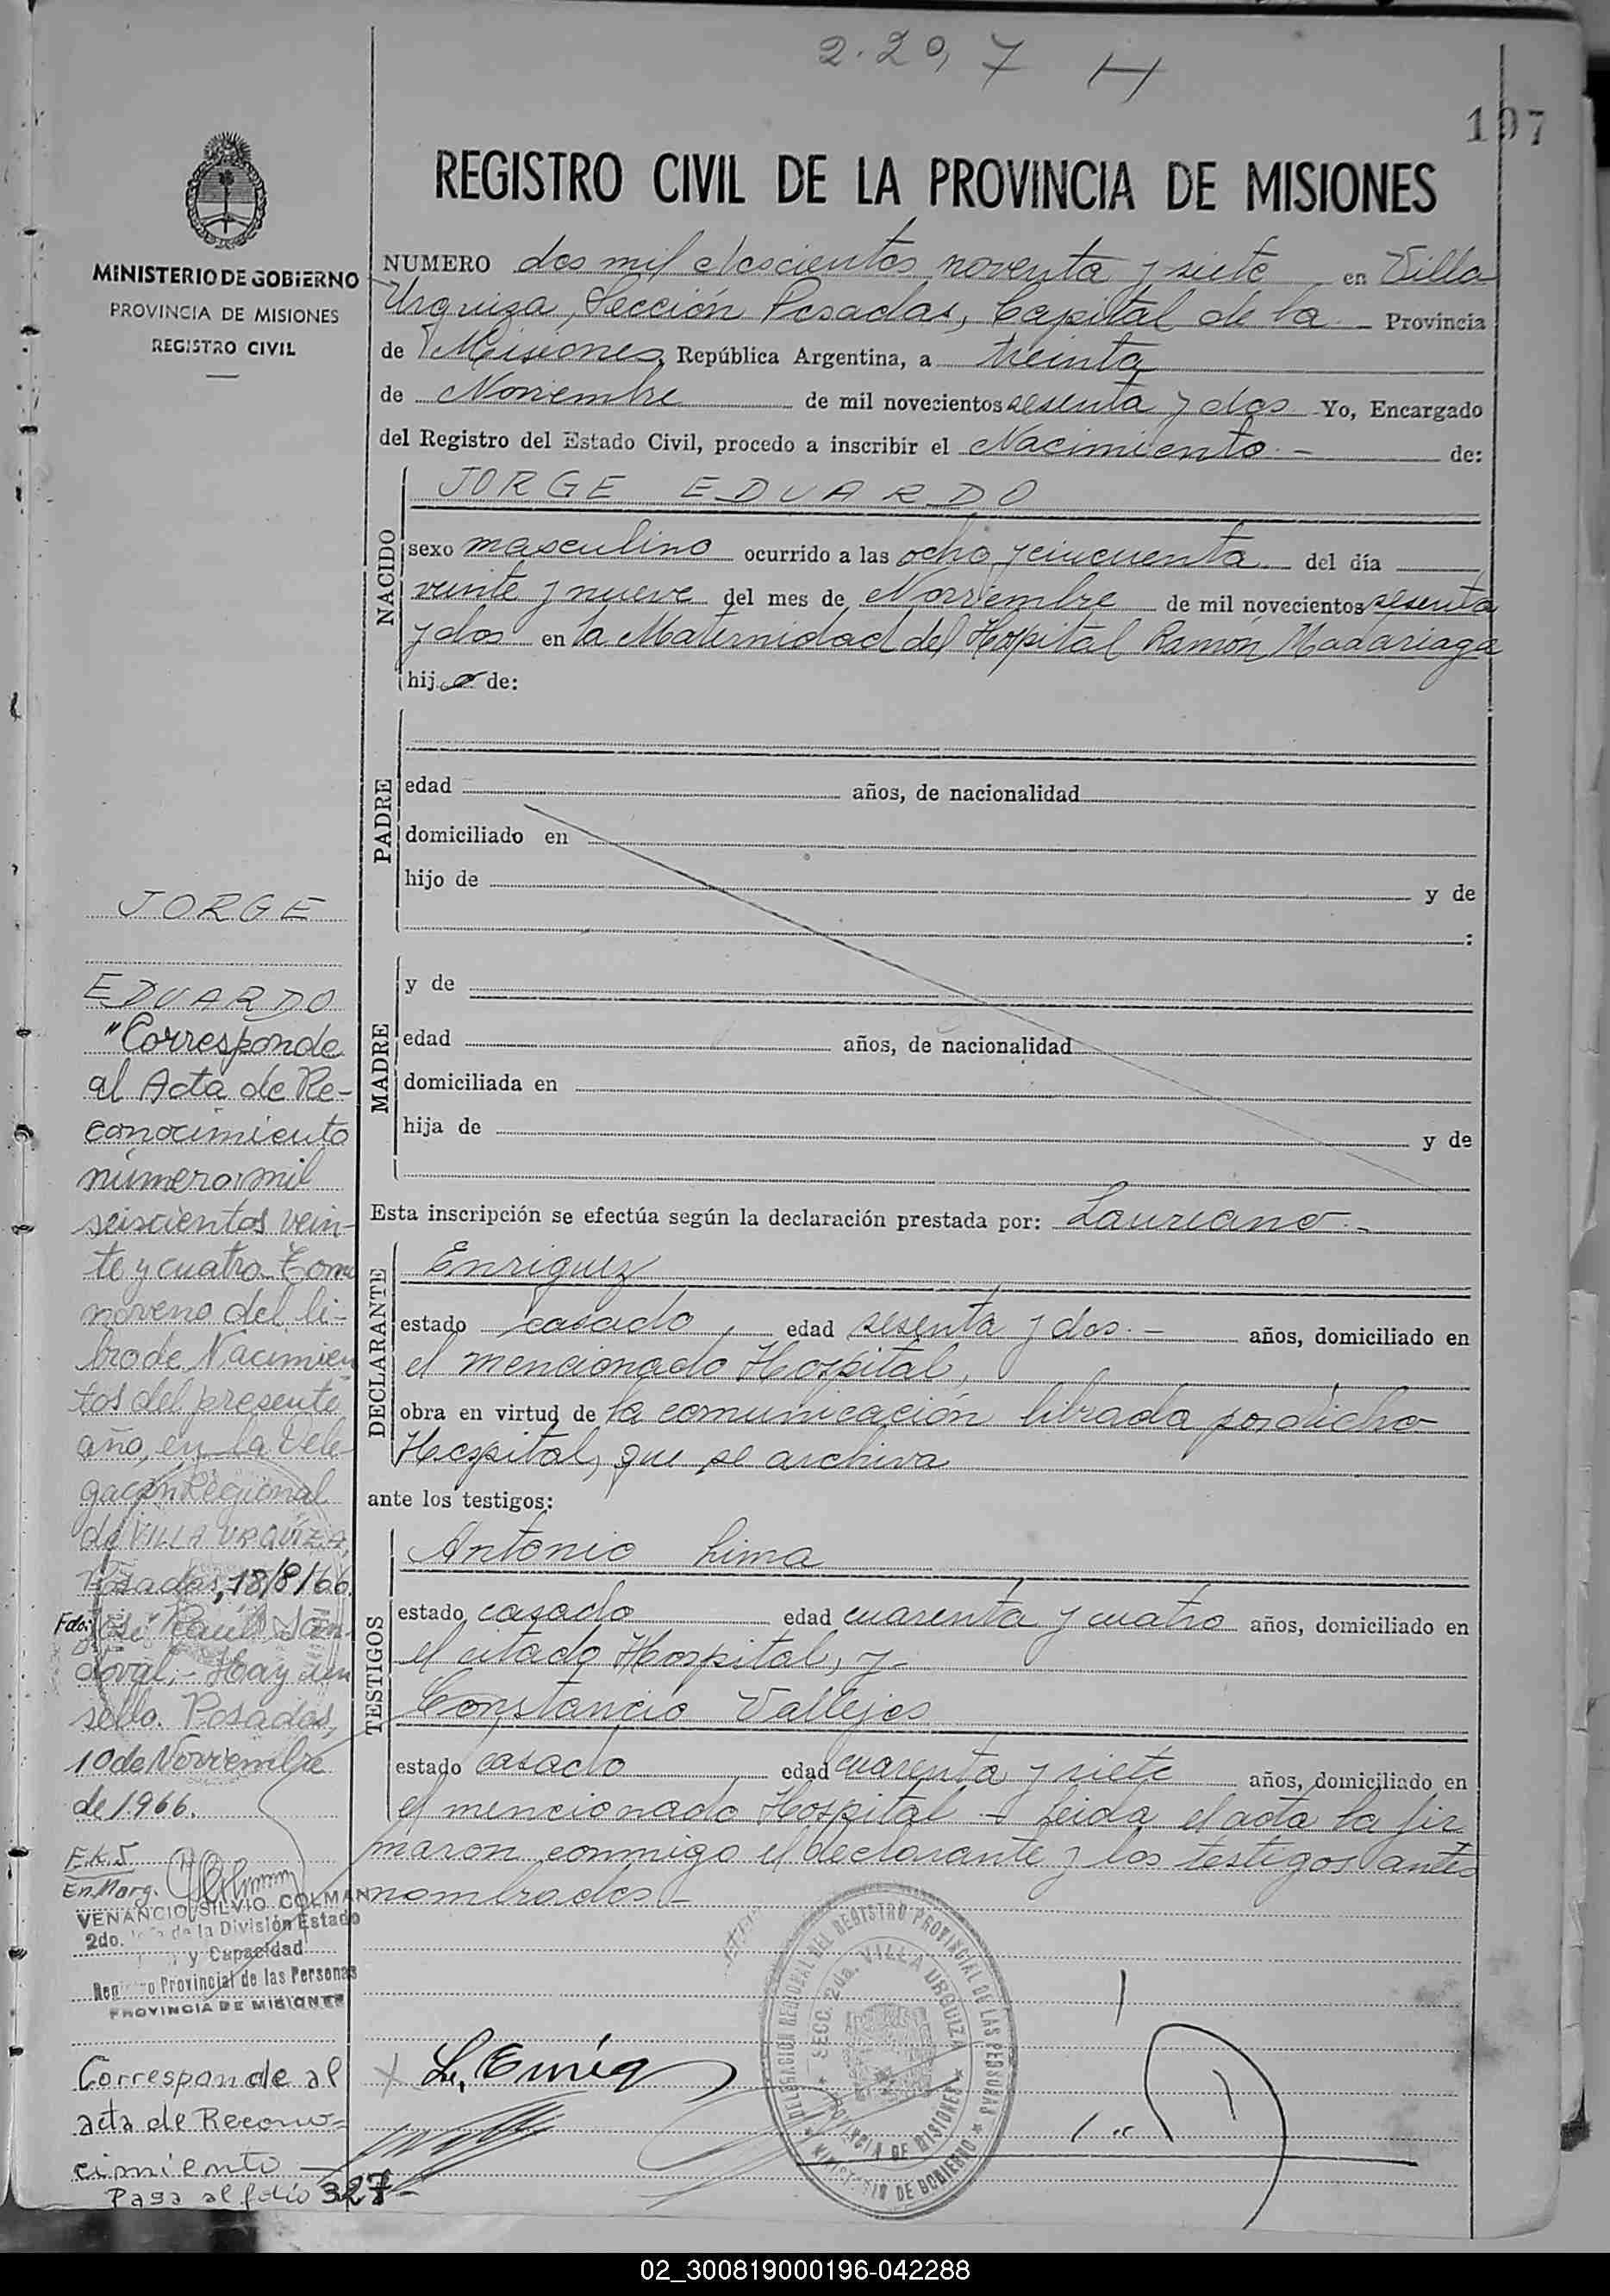 2.297 H
197
REGISTRO CIVIL DE LA PROVINCIA DE MISIONES
MINISTERIO DE GOBIERNO
PROVINCIA DE MISIONES
REGISTRO CIVIL
NUMERO dos mil doscientos noventa y siete en Villa
Urquiza, Sección Posadas, Capital de la Provincia
de Misiones, República Argentina, a treinta
de Noviembre de mil novecientos sesenta y dos Yo, Encargado
del Registro del Estado Civil, procedo a inscribir el Nacimiento.- de:
NACIDO
JORGE EDUARDO
sexo masculino ocurrido a las ocho y cincuenta del día
veinte y nueve del mes de Noviembre de mil novecientos sesenta
y dos en la Maternidad del Hospital Ramón Madariaga
hijo de:
PADRE
edad años, de nacionalidad
domiciliado en
hijo de y de
:
MADRE
y de
edad años, de nacionalidad
domiciliada en
hija de y de
Esta inscripción se efectúa según la declaración prestada por: Laureano.-
DECLARANTE
Enriquez
estado casado, edad sesenta y dos.- años, domiciliado en
el mencionado Hospital,
obra en virtud de la comunicación librada por dicho
Hospital, que se archiva
ante los testigos:
TESTIGOS
Antonio Lima
estado casado edad cuarenta y cuatro años, domiciliado en
el citado Hospital, y
Constancio Vallejos
estado casado edad cuarenta y siete años, domiciliado en
el mencionado Hospital - Leida el acta la fir
maron conmigo el declarante y los testigos antes
nombrados.-
JORGE
EDUARDO
"Corresponde
al Acta de Re-
conocimiento
número mil
seiscientos vein-
te y cuatro Tomo
noveno del li-
bro de Nacimien
tos del presente
año, en la Dele
gación Regional
de VILLA URQUIZA,
Posadas, 18/8/66.
Fdo: José Raúl San-
doval.- Hay un
sello. Posadas,
10 de Noviembre
de 1966.
E.K.S
En Marg.
VENANCIO SILVIO COLMAN
2do. Jefe de la División Estado
y Capacidad
Registro Provincial de las Personas
PROVINCIA DE MISIONES
Corresponde al
acta de Recono-
cimiento
Pasa al folio 327-
L. Enriq
DELEGACION REGIONAL DEL REGISTRO PROVINCIAL DE LAS PERSONAS
SECC. 2da. VILLA URQUIZA
PROVINCIA DE MISIONES
MINISTERIO DE GOBIERNO
02_300819000196-042288